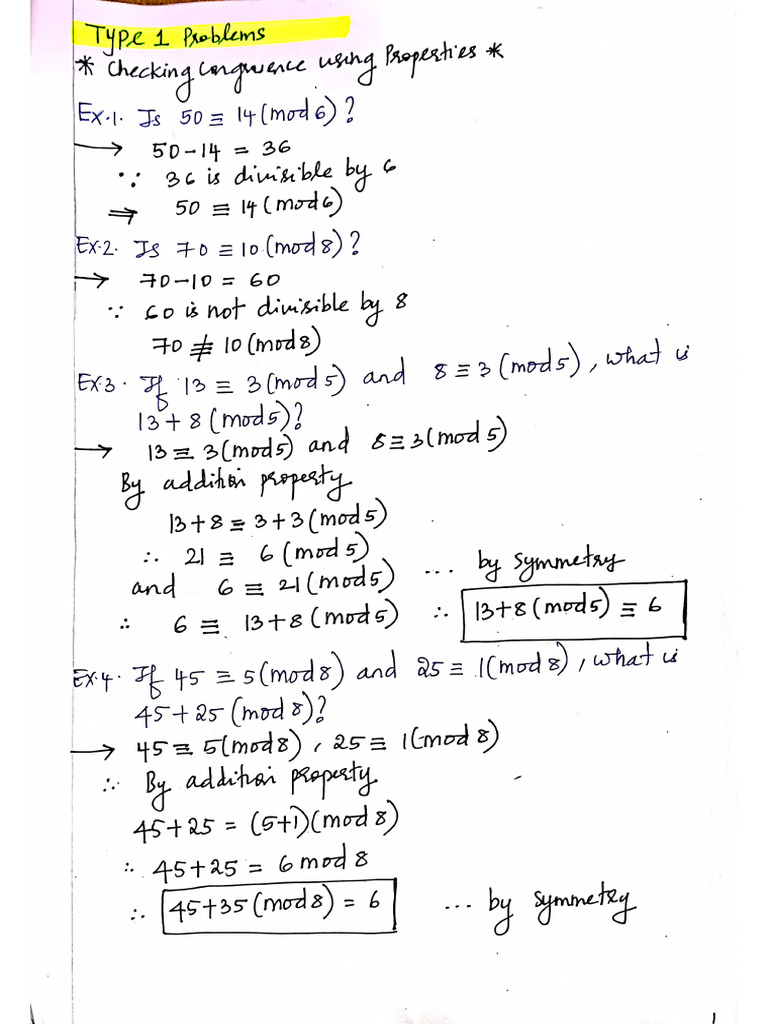 Type 1 Problems
* Checking Congruence using Properties *
Ex.1. Is 50 ≡ 14 (mod 6)?
→ 50-14 = 36
∵ 36 is divisible by 6
⇒ 50 ≡ 14 (mod 6)
Ex.2. Is 70 ≡ 10 (mod 8)?
→ 70-10 = 60
∵ 60 is not divisible by 8
70 ≢ 10 (mod 8)
Ex.3. If 13 ≡ 3 (mod 5) and 8 ≡ 3 (mod 5), what is
13+8 (mod 5)?
→ 13 ≡ 3 (mod 5) and 8 ≡ 3 (mod 5)
By addition property
13+8 ≡ 3+3 (mod 5)
∴ 21 ≡ 6 (mod 5)
and 6 ≡ 21 (mod 5) ... by symmetry
∴ 6 ≡ 13+8 (mod 5) ∴ 13+8 (mod 5) ≡ 6
Ex.4. If 45 ≡ 5 (mod 8) and 25 ≡ 1 (mod 8), what is
45+25 (mod 8)?
→ 45 ≡ 5 (mod 8), 25 ≡ 1 (mod 8)
∴ By addition property
45+25 = (5+1)(mod 8)
∴ 45+25 = 6 mod 8
∴ 45+35 (mod 8) = 6 ... by symmetry
1